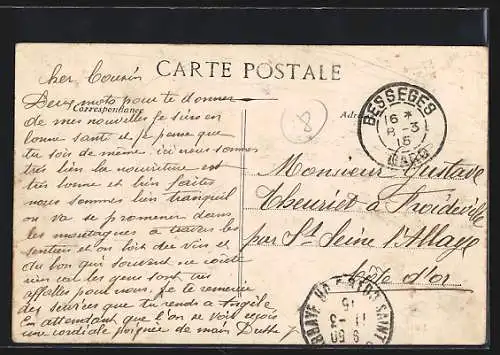 CARTE POSTALE
Correspondance
Cher Cousin
Deux mots pour te donner
de mes nouvelles je suis en
bonne santé et je pense que
tu sois de même ici nous sommes
très bien la nourriture est
très bonne et bien faites
nous sommes bien tranquil
on va se promener dans
les montagnes a travers les
sentiers et on boit du vin et
du bon qui souvent ne coûte
rien car les gens sont très
affables pour nous. je te remercie
des services que tu rends a Angèle
En attendant que l'on se voit reçois
une cordiale poignée de main
8
BESSEGES
16 *
8 - 3
15
GARD
Monsieur Gustave
Theuriet à Froideville
par St Seine l'Abbaye
Côte d'or
15
11 - 3
9 50